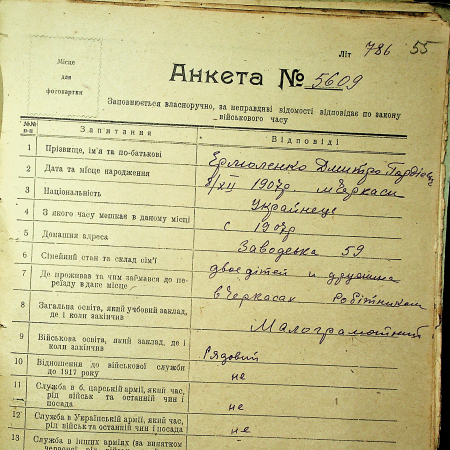 Літ 786 55
Місце
для
фотокартки
Анкета № 5609
Заповнюється власноручно, за неправдиві відомості відповідає по закону
військового часу
№№
п-п
Запитання
Відповіді
1 Прізвище, ім'я та по-батькові Ермоленко Дмитро
2 Дата та місце народження 8/XII 1907р. м Черкаси
3 Національність Українець
4 З якого часу мешкає в даному місці с 1907р
5 Домашня адреса Заводська 59
6 Сімейний стан та склад сім'ї двое дітей и дружина
7 Де проживав та чим займався до пе-
реїзду в дане місце в Черкасах робітником
8 Загальна освіта, який учбовий заклад,
де і коли закінчив Малограмотний
9 Військова освіта, який заклад, де і
коли закінчив Рядовий
10 Відношення до військової служби
до 1917 року не
11 Служба в б. царській армії, який час,
рід військ та останній чин і
посада не
12 Служба в Українській армії, який час,
рід військ та останній чин і посада не
13 Служба в інших арміях (за винятком